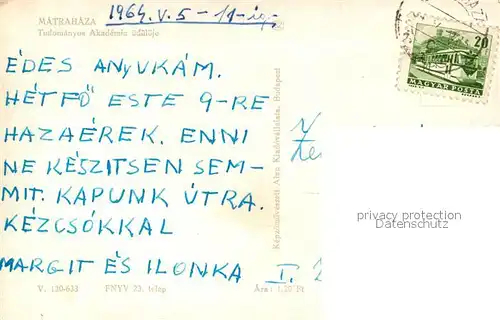 MÁTRAHÁZA
Tudományos Akadémia üdülője
1964.V.5-11-ig
ÉDES ANYUKÁM.
HÉTFŐ ESTE 9-RE
HAZAÉREK. ENNI
NE KÉSZITSEN SEM-
MIT. KAPUNK ÚTRA.
KÉZCSÓKKAL
MARGIT ÉS ILONKA
I.
V. 120-638 FNYV 23. telep Ára: 1,20 Ft
Képzőművészeti Alap Kiadóvállalata, Budapest
20
MAGYAR POSTA
privacy protection
Datenschutz